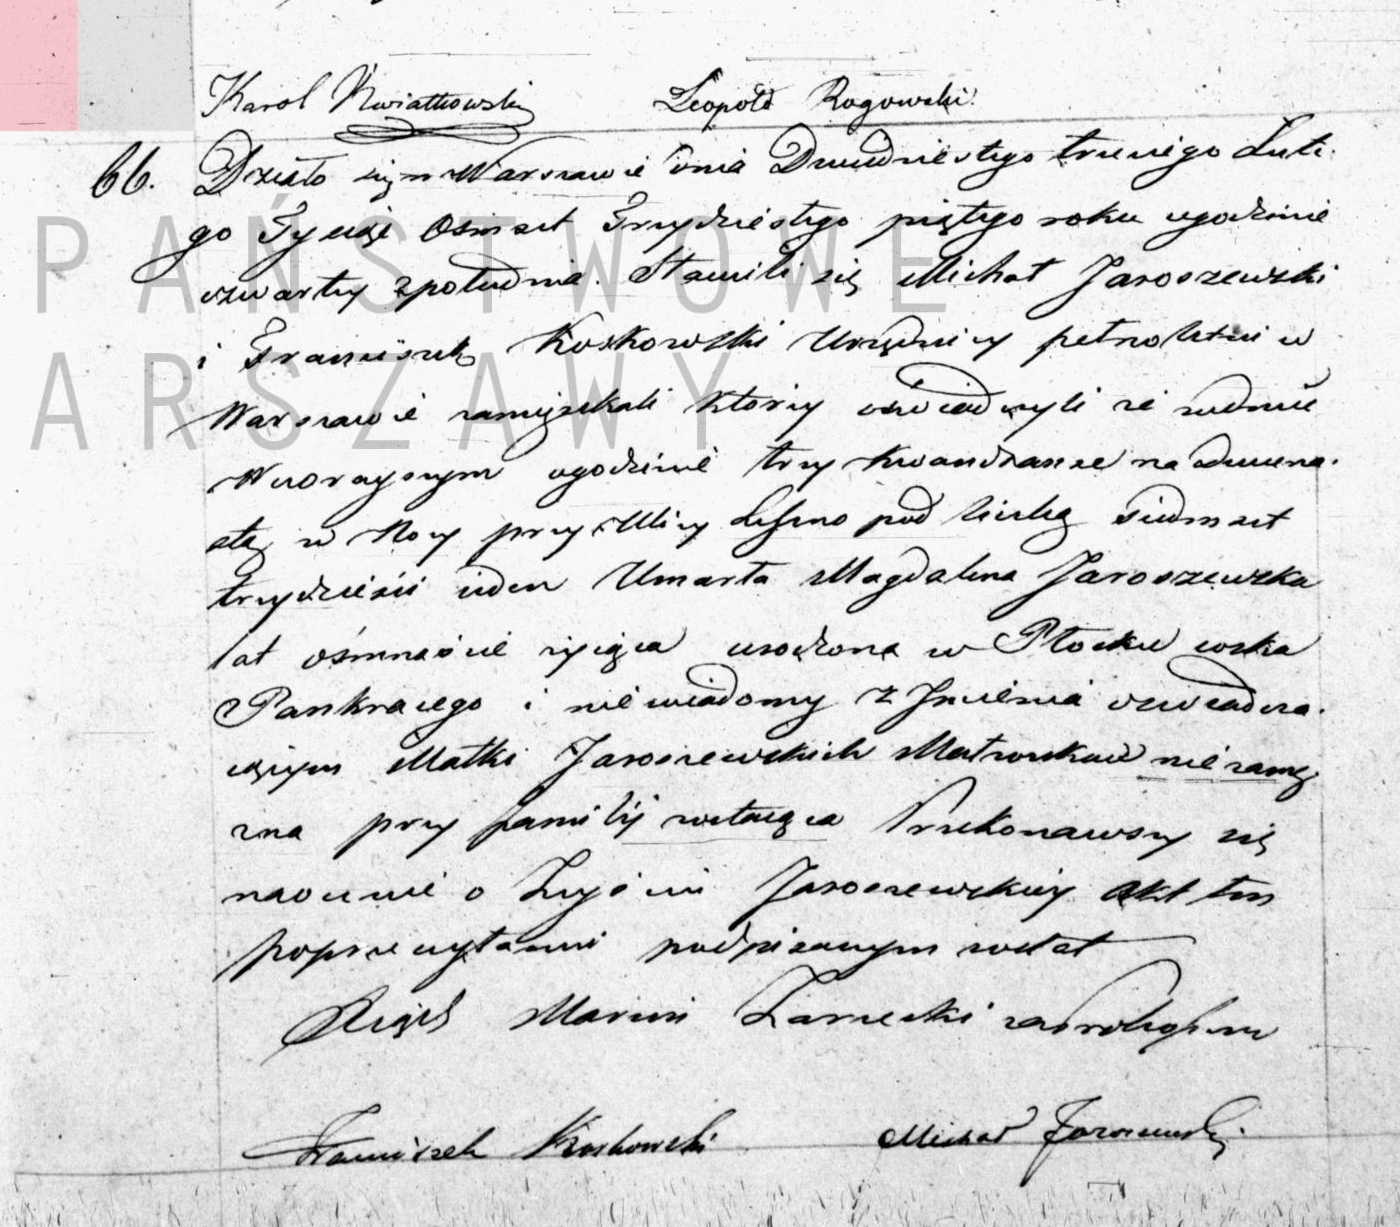 Karol Kwiatkowski Leopold Rogowski
66. Działo się w Warszawie dnia Dwudziestego trzeciego Lute-
go Tysiąc Osmset Trzydziestego piątego roku ogodzinie
czwarty zpołudnia. Stawili się Michał Jaroszewski
i Franciszek Koskowski Urzędnicy pełnoletni w
Warszawie zamięszkali ktorzy oświadczyli że wdniu
Wczorayszym ogodzinie trzy kwandranse na dwuna-
stą w Nocy przy Ulicy Leszno pod liczbą siedmset
trzydzieści ieden Umarła Magdalena Jaroszewska
lat ośmnaście żyiąca urodzona w Płocku corka
Pankracego i niewiadomy z Imienia oswiadcza-
iącym Matki Jaroszewskich Małzonkow niezamę
zna przy familij zostaiąca Przekonawszy się
naocznie o Zeyściu Jaroszewskiey Akt ten
poprzeczytaniu podpisanym został
Xiądz Marcin Zarzecki
Franciszek Koskowski Michał Jaroszewski
PAŃSTWOWE
ARSZAWY